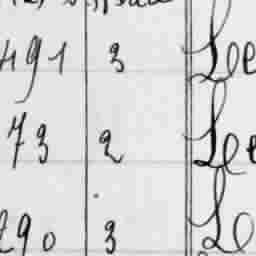 491 3 Lee
73 2 Lee
290 3 Le